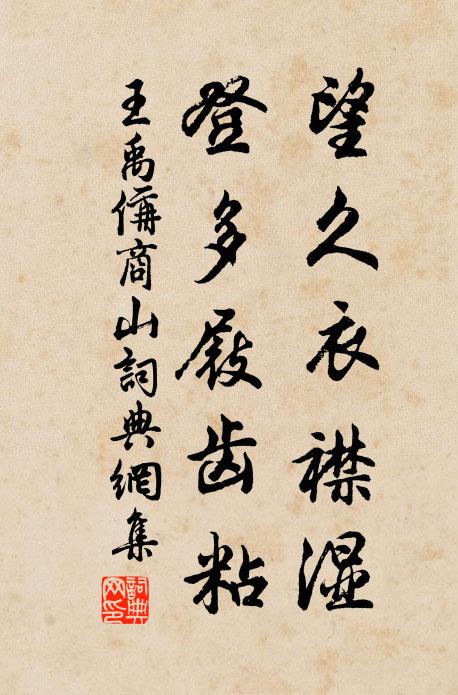 望久衣襟湿
登多屐齿粘
王禹偁商山詞典網集
詞典網印